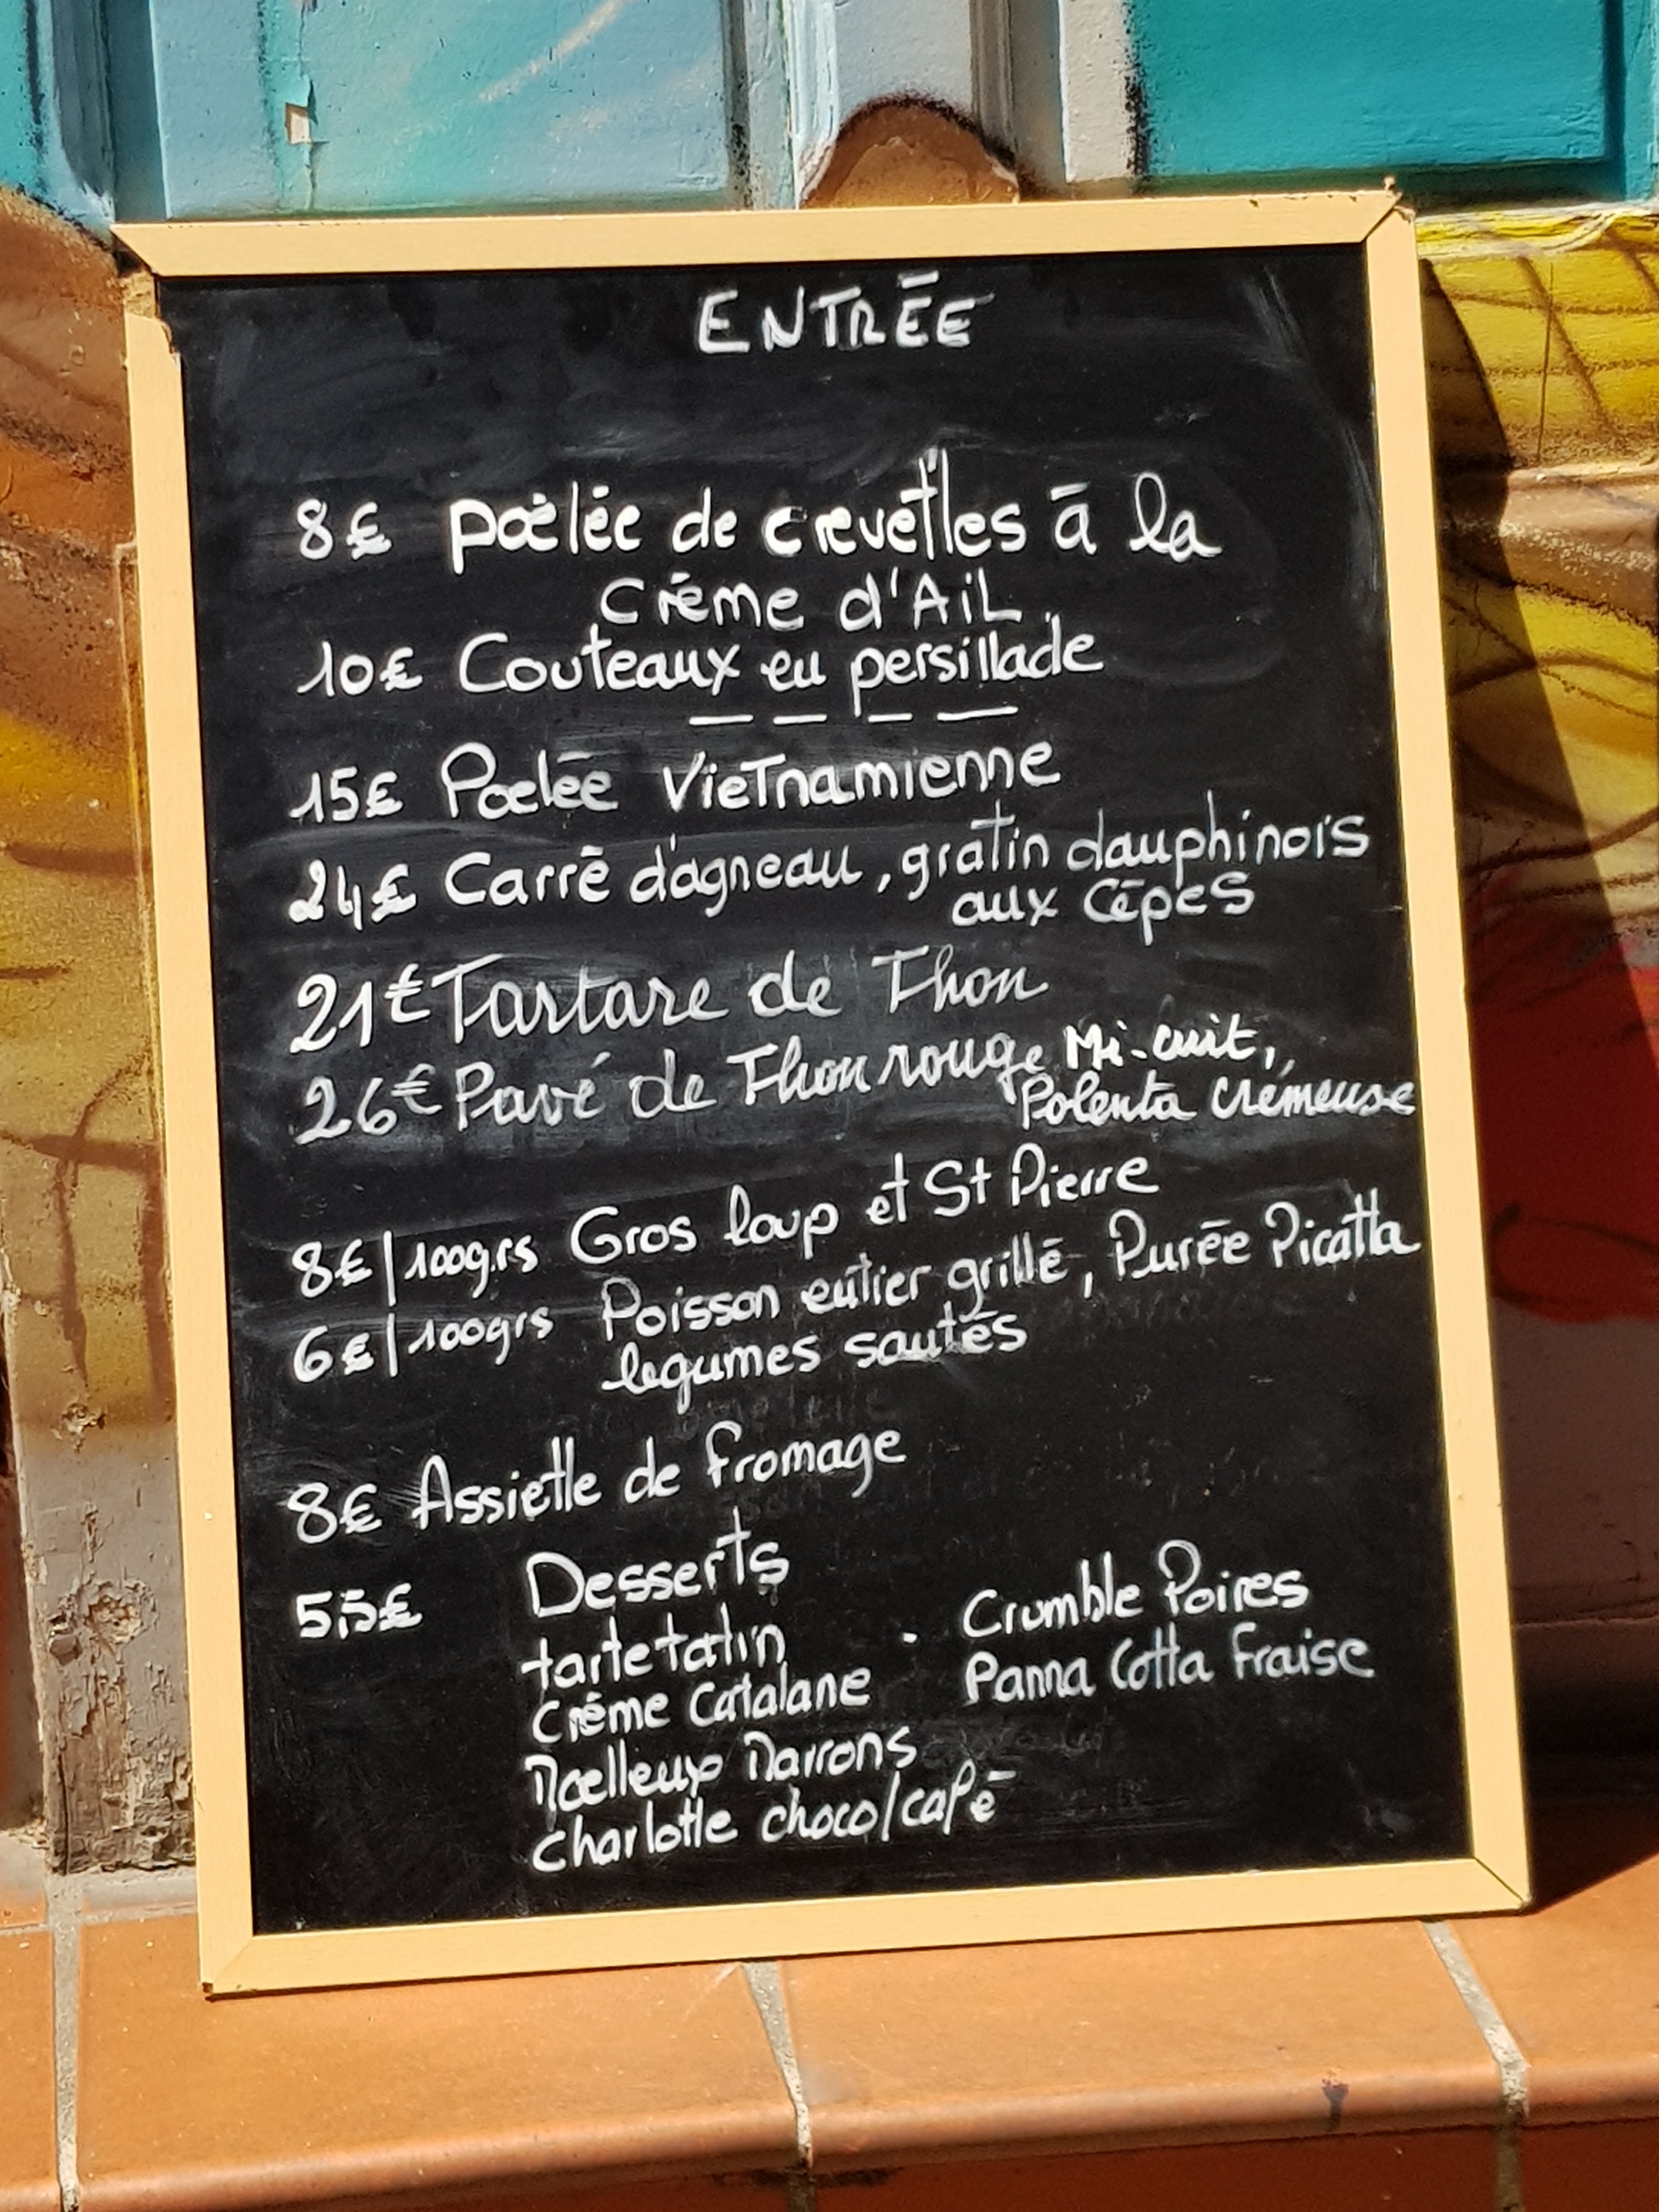 ENTRÉE
8€ poêlée de crevettes à la
Crème d'AiL.
10€ Couteaux en persillade
– – – –
15€ Poelée Vietnamienne
24€ Carré d'agneau, gratin dauphinois
aux cèpes
21€ Tartare de Thon
26€ Pavé de Thon rouge Mi-cuit,
Polenta Crémeuse
8€/100grs Gros loup et St Pierre
6€/100grs Poisson entier grillé, Purée Picatta
legumes sautés
8€ Assiette de fromage
5,5€ Desserts
tarte tatin . Crumble Poires
Crème Catalane Panna Cotta fraise
Moelleux Marrons
Charlotte choco/café